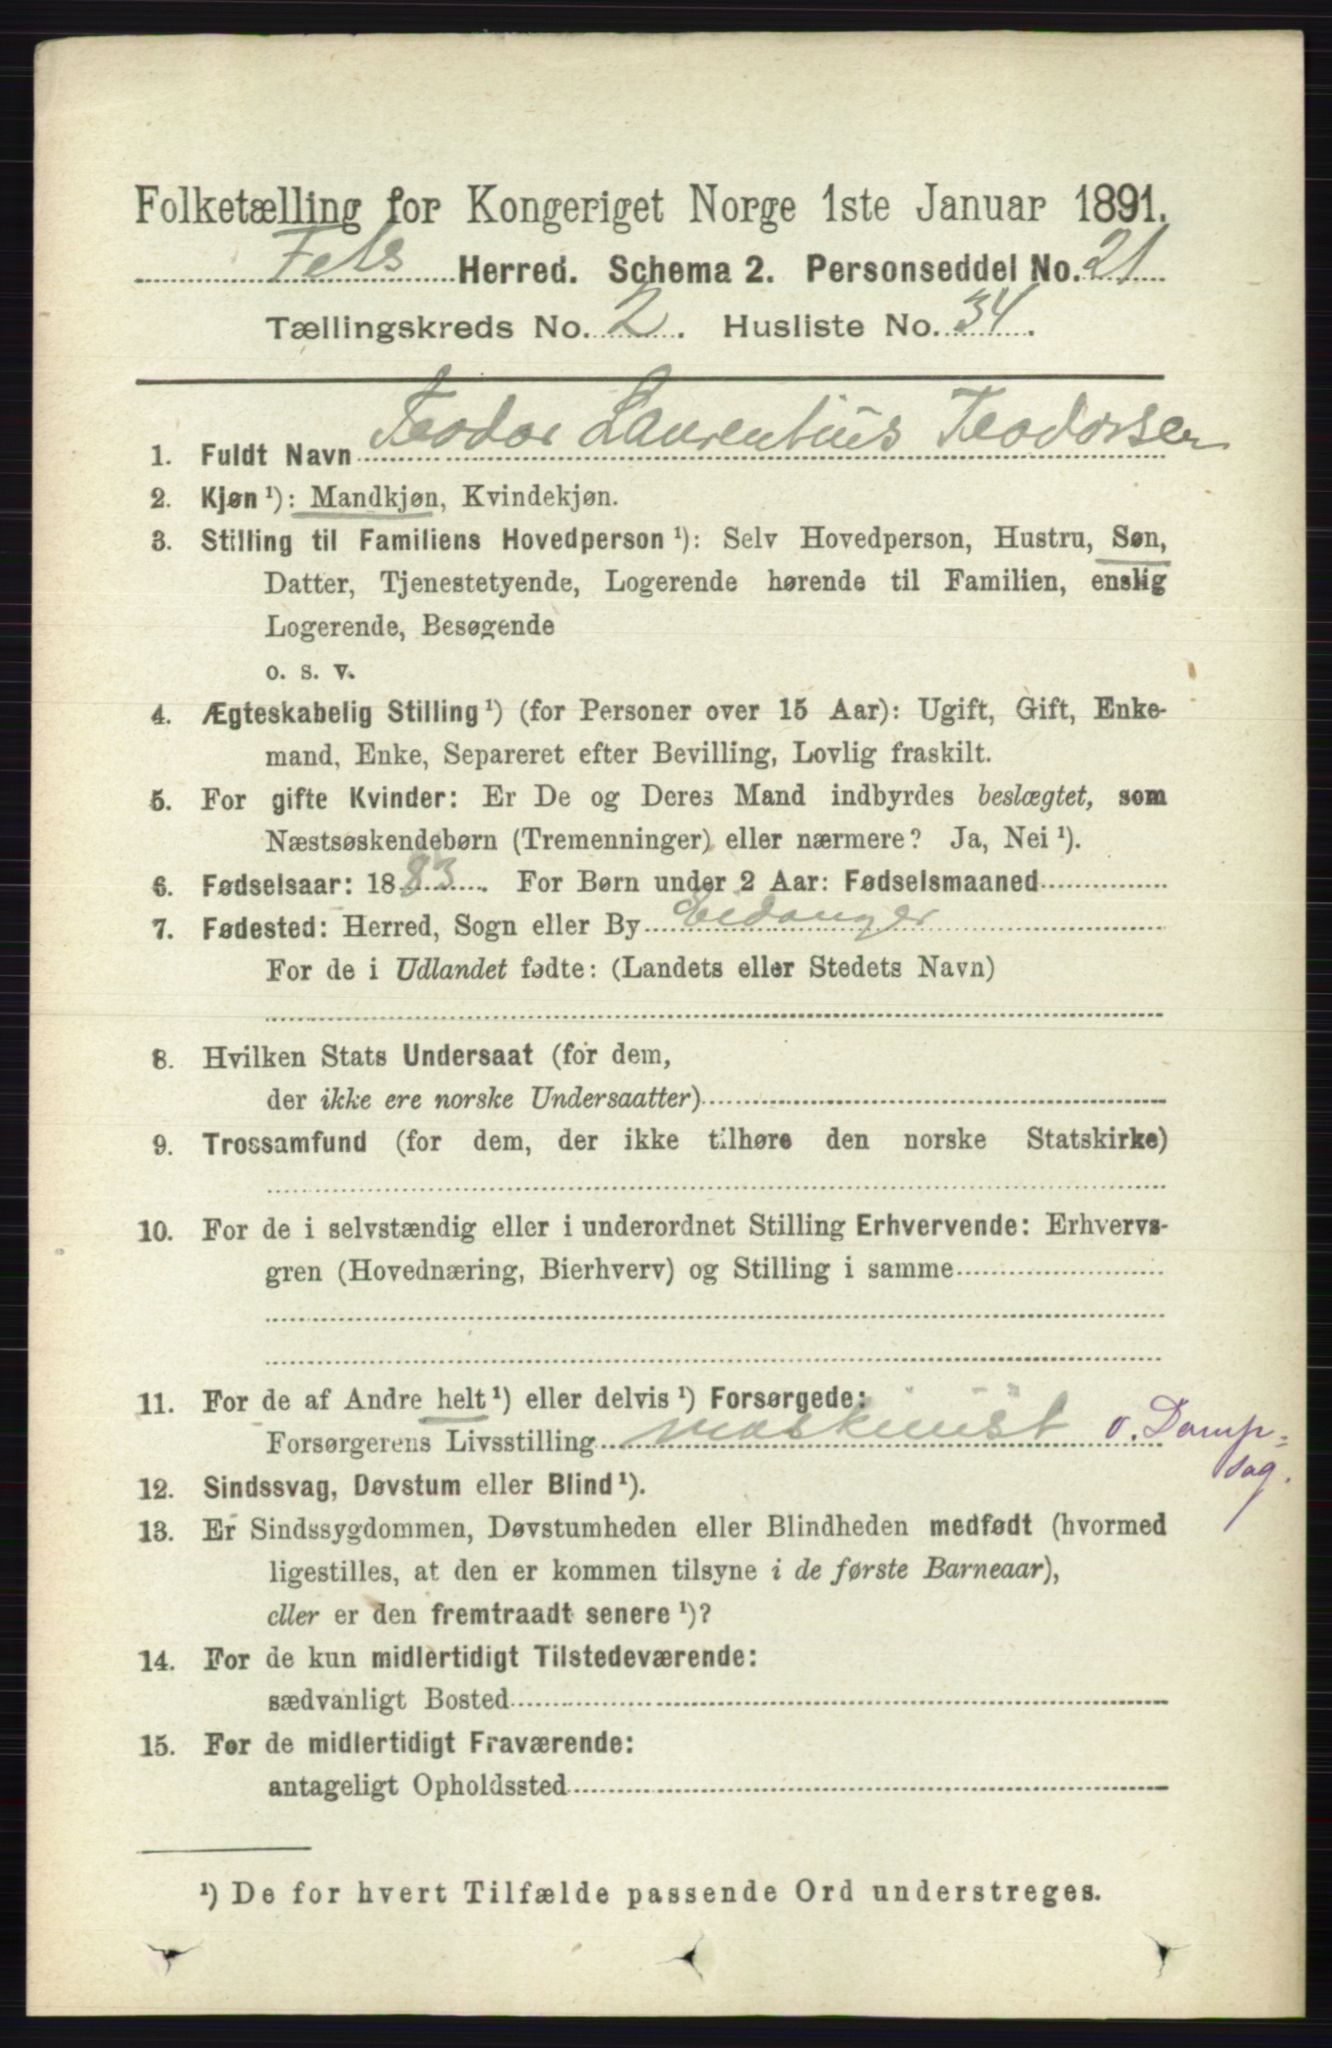 Folketælling for Kongeriget Norge 1ste Januar 1891.
Herred. Schema 2. Personseddel No. 21
Tællingskreds No. 2. Husliste No. 34.
1. Fuldt Navn Teodor Laurentius Teodorsen
2. Kjøn ¹): Mandkjøn, Kvindekjøn.
3. Stilling til Familiens Hovedperson ¹): Selv Hovedperson, Hustru, Søn,
Datter, Tjenestetyende, Logerende hørende til Familien, enslig
Logerende, Besøgende
o. s. v.
4. Ægteskabelig Stilling ¹) (for Personer over 15 Aar): Ugift, Gift, Enke-
mand, Enke, Separeret efter Bevilling, Lovlig fraskilt.
5. For gifte Kvinder: Er De og Deres Mand indbyrdes beslægtet, som
Næstsøskendebørn (Tremenninger) eller nærmere? Ja, Nei ¹).
6. Fødselsaar: 1883. For Børn under 2 Aar: Fødselsmaaned
7. Fødested: Herred, Sogn eller By Eidanger
For de i Udlandet fødte: (Landets eller Stedets Navn)
8. Hvilken Stats Undersaat (for dem,
der ikke ere norske Undersaatter)
9. Trossamfund (for dem, der ikke tilhøre den norske Statskirke)
10. For de i selvstændig eller i underordnet Stilling Erhvervende: Erhvervs-
gren (Hovednæring, Bierhverv) og Stilling i samme
11. For de af Andre helt ¹) eller delvis ¹) Forsørgede:
Forsørgerens Livsstilling maskinist v. Damp-
sag.
12. Sindssvag, Døvstum eller Blind ¹).
13. Er Sindssygdommen, Døvstumheden eller Blindheden medfødt (hvormed
ligestilles, at den er kommen tilsyne i de første Barneaar),
eller er den fremtraadt senere ¹)?
14. For de kun midlertidigt Tilstedeværende:
sædvanligt Bosted
15. For de midlertidigt Fraværende:
antageligt Opholdssted
¹) De for hvert Tilfælde passende Ord understreges.